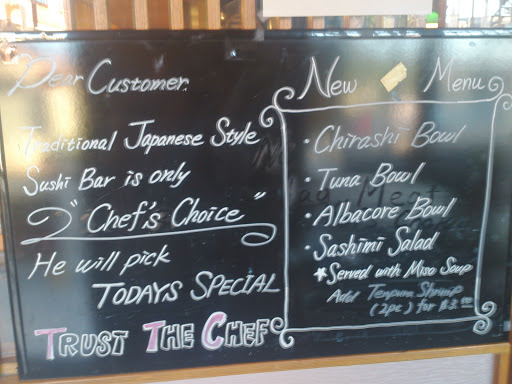 Dear Customer.
Traditional Japanese Style
Sushi Bar is only
"Chef's Choice"
He will pick
TODAYS SPECIAL
TRUST THE CHEF
New Menu
• Chirashi Bowl
• Tuna Bowl
• Albacore Bowl
• Sashimi Salad
★ Served with Miso Soup
Add Tempura Shrimp
(2pc) for $3.00